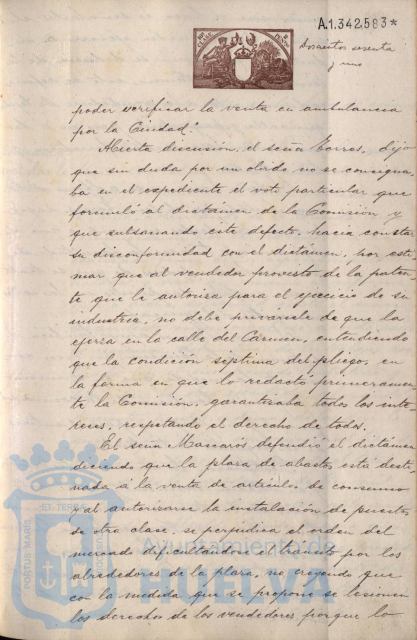 A.1.342.583*
Doscientos sesenta
y uno
poder verificar la venta en ambulancia
por la Ciudad."
Abierta discusion, el señor Torres, dijo
que sin duda por un olvido no se consigna-
ba en el expediente el voto particular que
formuló al dictámen de la Comisión y
que subsanando este defecto, hacia constar
su disconformidad con el dictámen, por esti-
mar que al vendedor provisto de la paten-
te que le autorisa para el ejercicio de su
industria, no debe privársele de que la
ejerza en la calle del Carmen, entendiendo
que la condición séptima del pliego, en
la forma en que lo redactó primeramen-
te la Comisión, garantizaba todos los inte-
reses, respetando el derecho de todos.
El señor Mascarós defendió el dictámen
diciendo que la plaza de abastos está desti-
nada á la venta de artículos de consumo
y al autorizarse la instalación de puestos
de otra clase, se perjudica el orden del
mercado dificultandose el tránsito por los
alrededores de la plaza, no creyendo que
con la medida que se propone se lesionen
los derechos de los vendedores porque lo
PORTUS MARIS ET TERRAE
Ayuntamiento de
HUELVA